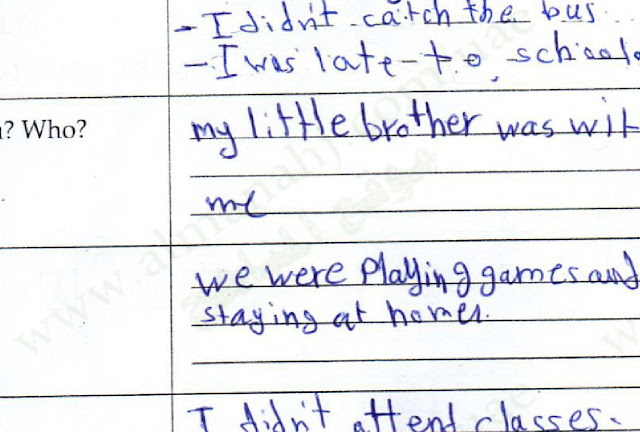 - I didn't catch the bus.
- I was late to school
? Who?
my little brother was wit
me
we were playing games and
staying at homes.
I didn't attend classes.